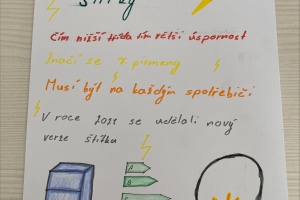 Štítky
Čím nižší třída tím větší úspornost
Značí se písmeny
Musí být na každým spotřebiči
V roce 2021 se udělali nový
verze štítků
A